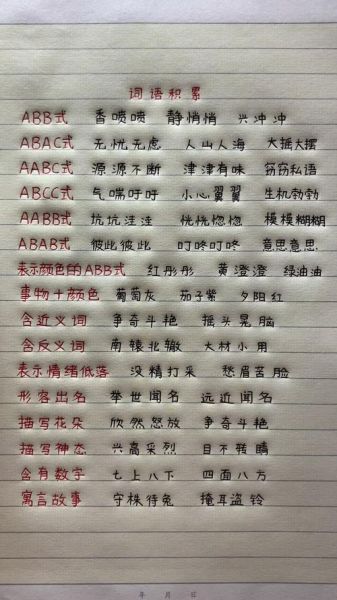 词语积累
ABB式 香喷喷 静悄悄 兴冲冲
ABAC式 无忧无虑 人山人海 大摇大摆
AABC式 源源不断 津津有味 窃窃私语
ABCC式 气喘吁吁 小心翼翼 生机勃勃
AABB式 坑坑洼洼 恍恍惚惚 模模糊糊
ABAB式 彼此彼此 叮咚叮咚 意思意思
表示颜色的ABB式 红彤彤 黄澄澄 绿油油
事物+颜色 葡萄灰 茄子紫 夕阳红
含近义词 争奇斗艳 摇头晃脑
含反义词 南辕北辙 大材小用
表示情绪低落 没精打采 愁眉苦脸
形容出名 举世闻名 远近闻名
描写花朵 欣然怒放 争奇斗艳
描写神态 兴高采烈 目不转睛
含有数字 七上八下 四面八方
寓言故事 守株待兔 掩耳盗铃
年 月 日